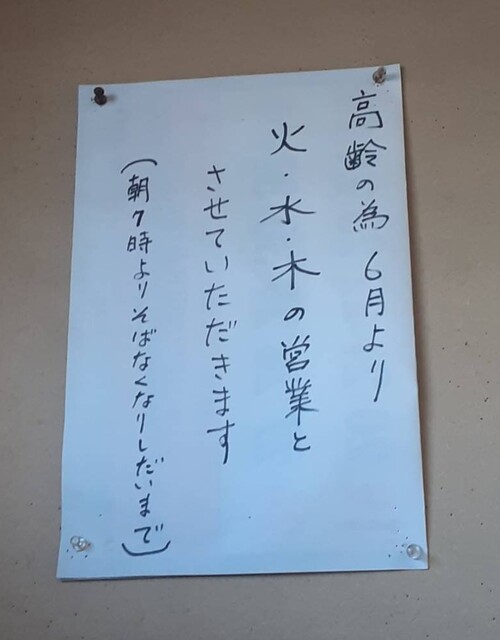 高齢の為 6月より
火・水・木の営業と
させていただきます
(朝7時よりそばなくなりしだいまで)